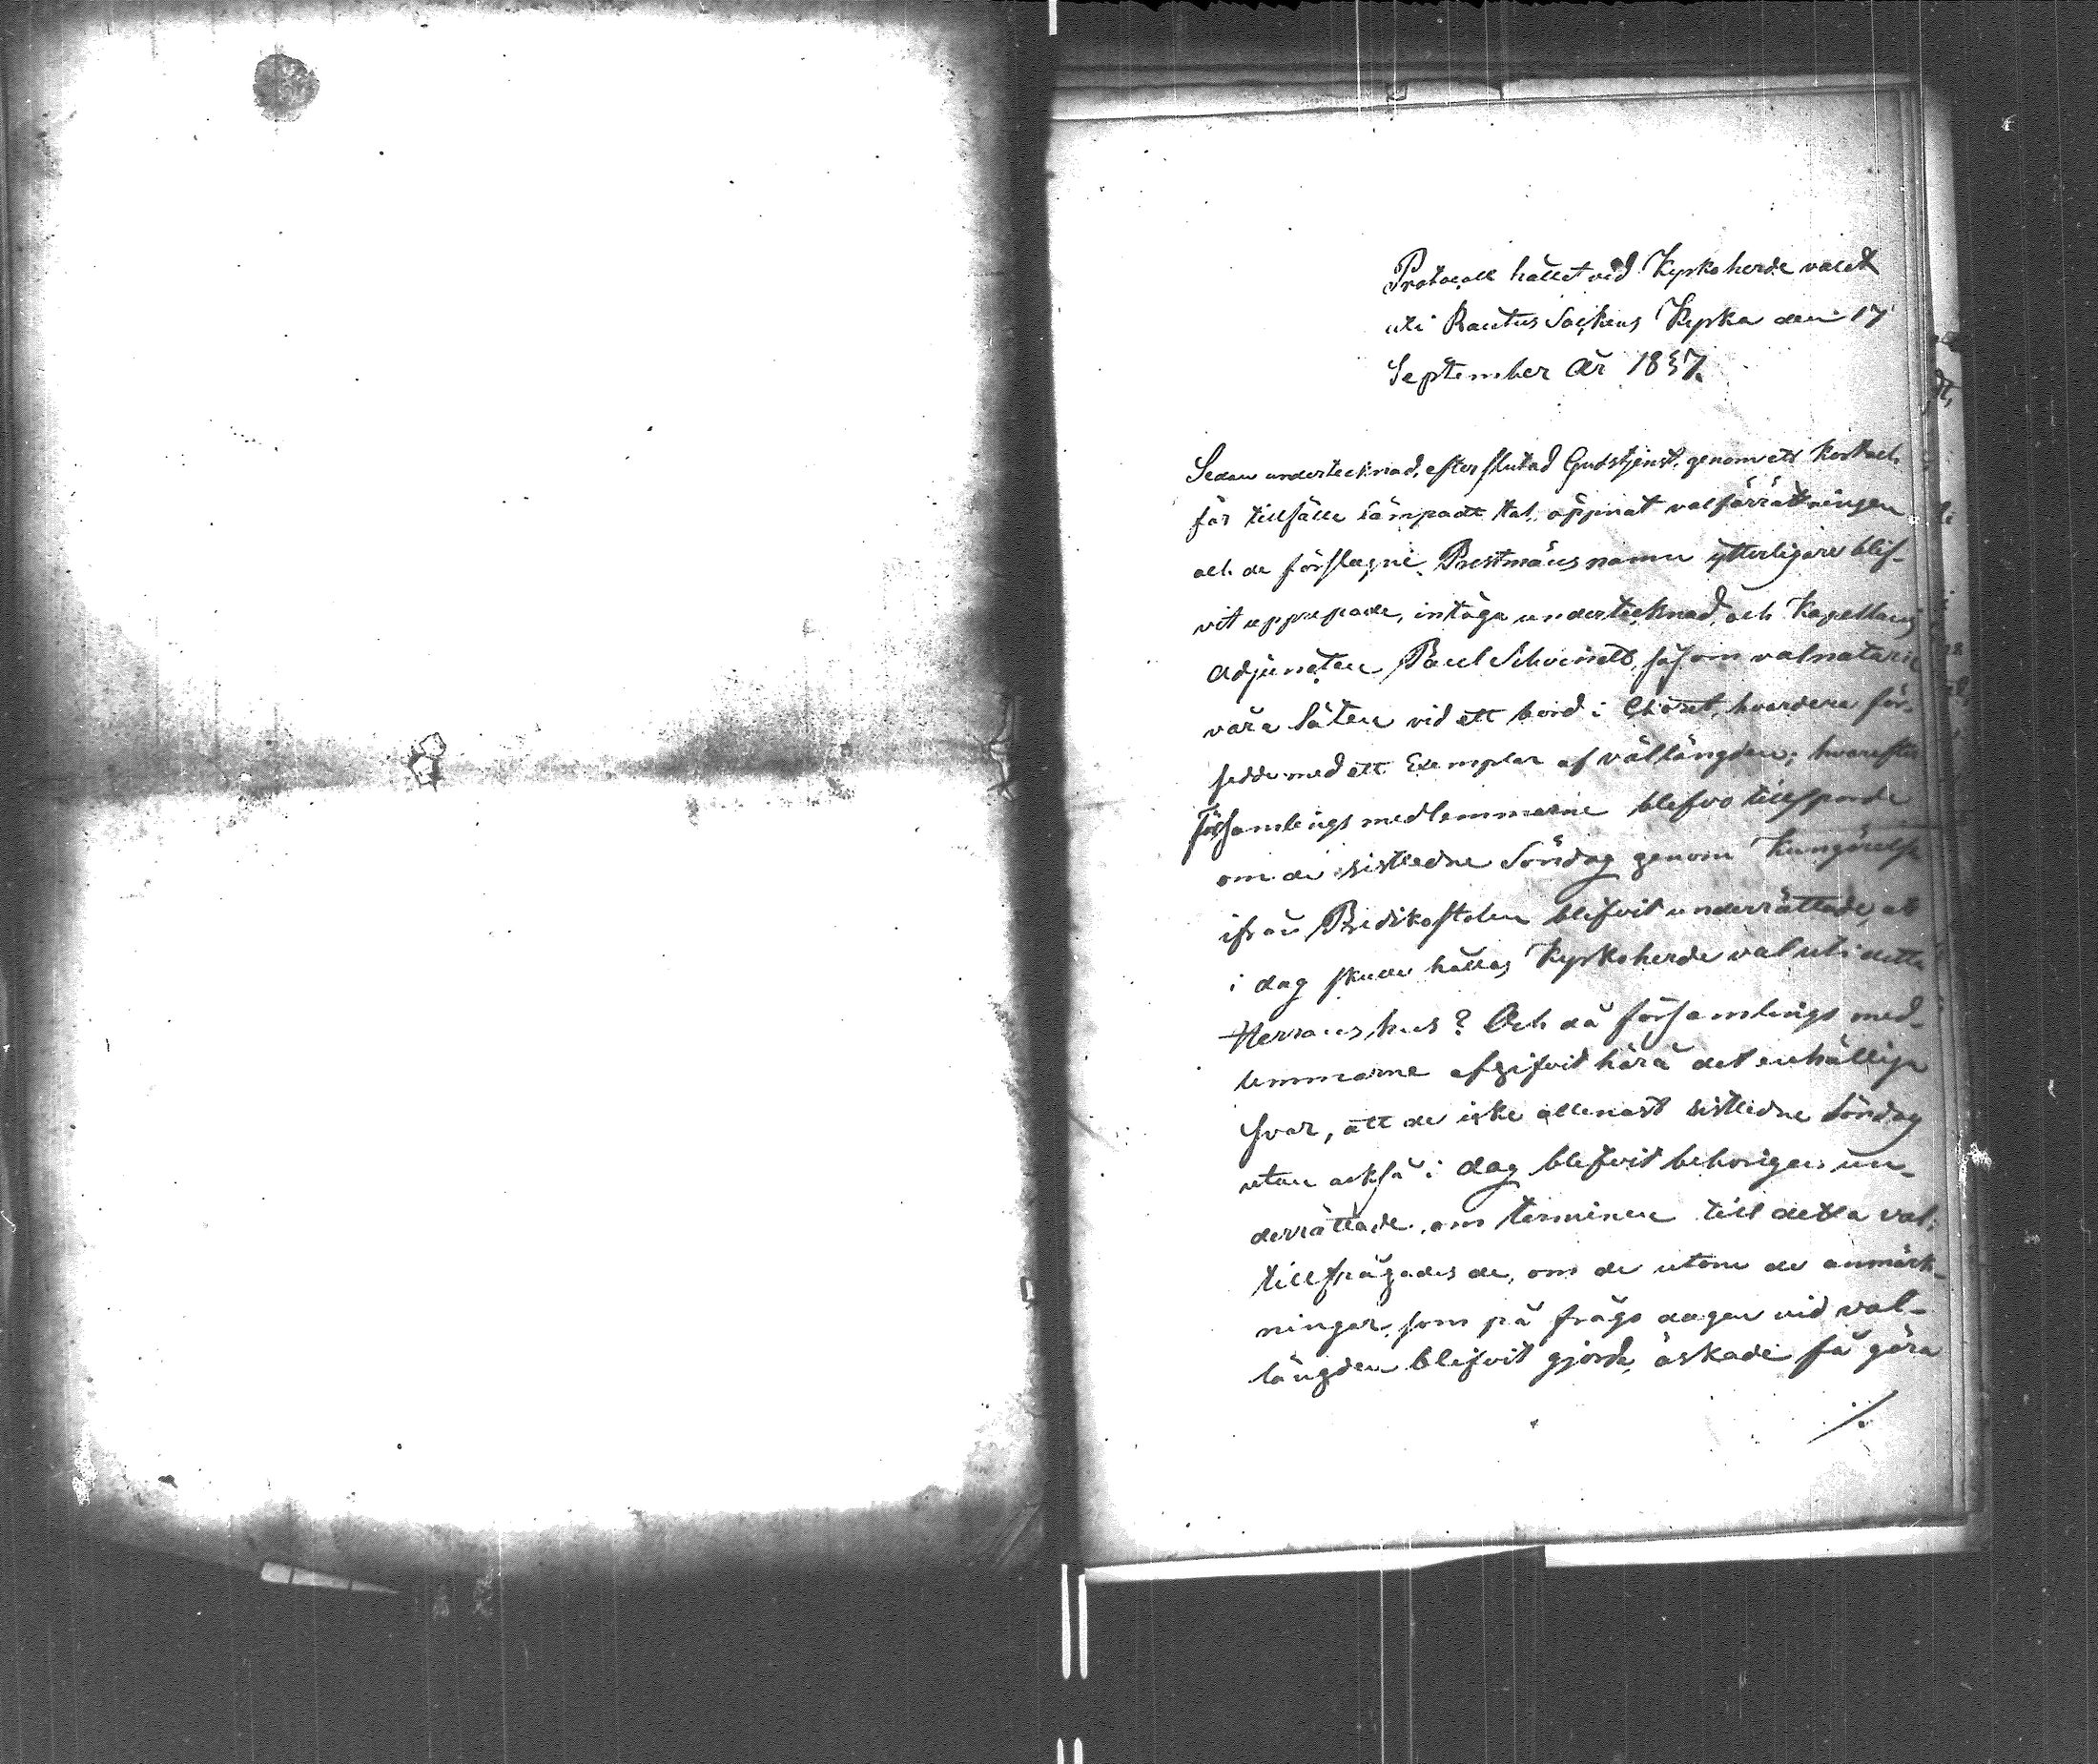 Protocoll hållet vid Kyrkoherde valet
uti Rautus Sockens Kyrka den 17
September År 1837.
Sedan undertecknad, efter slutad Gudstjenst, genom ett kort och
för tillfälle lämpadt tal, öppnat valförrättningen
och de förslagne Prestmäns namn ytterligare blif-
vit upprepade, intoga undertecknad, och Kapellans
Adjuncten Paul Schvindt, såsom valnotarie
våra Säten vid ett bord i Choret, hvardera för-
sedd med ett Exemplar af vallängden; hvarefter
Församlings medlemmarne blefvo tillsporde
om de sistledne Söndag genom Kungörelse
ifrån Predikostolen blifvit underrättade, at
i dag skulle hållas Kyrkoherde val uti detta
Herrans hus? Och då församlings med-
lemmarne afgifvit härå det enhällige
svar, att de icke allenast sistledne Söndag
utan också i dag blifvit behörigen un-
derrättade om terminen till detta val;
tillfrågades de, om de utom de anmärk-
ningar, som på frågo dagen vid val-
längden blifvit gjorde, äskade få göra
./.